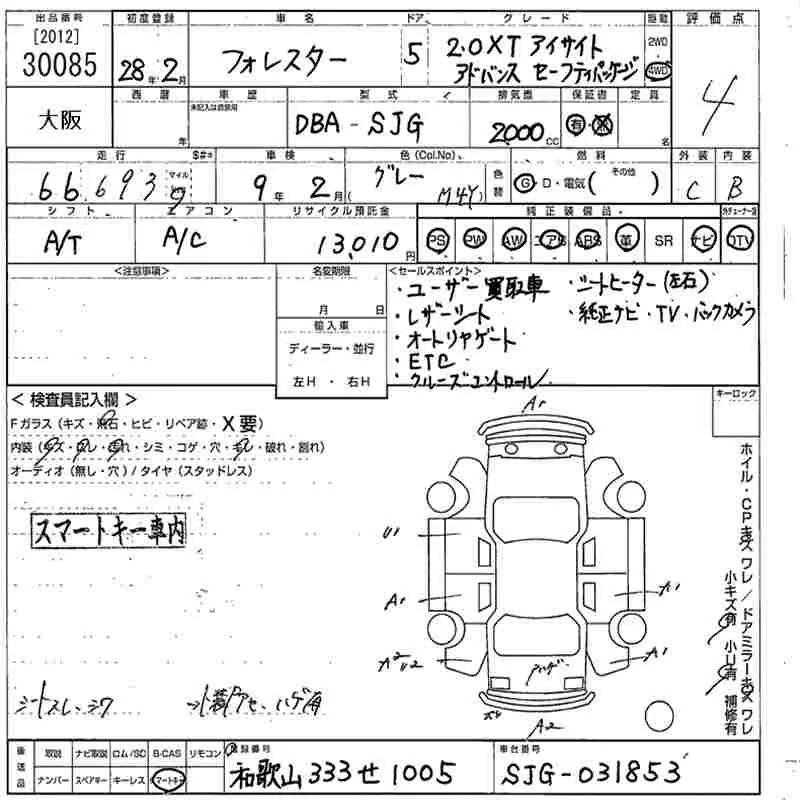 出品番号 初度登録 車名 ドア グレード 距離 評価点
[2012]
30085 28年 2月 フォレスター 5 2.0XT アイサイト アドバンス セーフティパッケージ 2WD 4WD 4
大阪 西暦 年 車歴 未記入は自家用 型式 DBA-SJG 排気量 2000 CC 保証書 有・無 定員 名
走行 66,693 マイル km $#= 車検 9年 2月 色(Col.No) グレー M4Y 色替 燃料 G D・電気( その他 ) 外装 C 内装 B
シフト A/T エアコン A/C リサイクル預託金 13,010円 純正装備品 PS PW AW エアB ABS 革 SR ナビ TV
<注意事項>
名変期限
月 日
輸入車
ディーラー・並行
左H ・ 右H
<セールスポイント>
・ユーザー買取車 ・シートヒーター(左右)
・レザーシート ・純正ナビ・TV・バックカメラ
・オートリヤゲート
・ETC
・クルーズコントロール
キーロック
< 検査員記入欄 >
Fガラス(キズ・飛石・ヒビ・リペア跡・X要)
内装(キズ・スレ・汚れ・シミ・コゲ・穴・キレ・破れ・割れ)
オーディオ(無し・穴)/タイヤ(スタッドレス)
スマートキー車内
A1
U1
A1 A1
A2 U2 A1
A2
シートスレ・シワ
ホイル・CPキズ ワレ/ドアミラーキズ ワレ
小キズ有 小U有 補修有
後送品 取説 ナビ取説 ロム/SD B-CAS リモコン
ナンバー スペアキー キーレス スマートキー
登録番号 和歌山 333 せ 1005
車台番号 SJG-031853